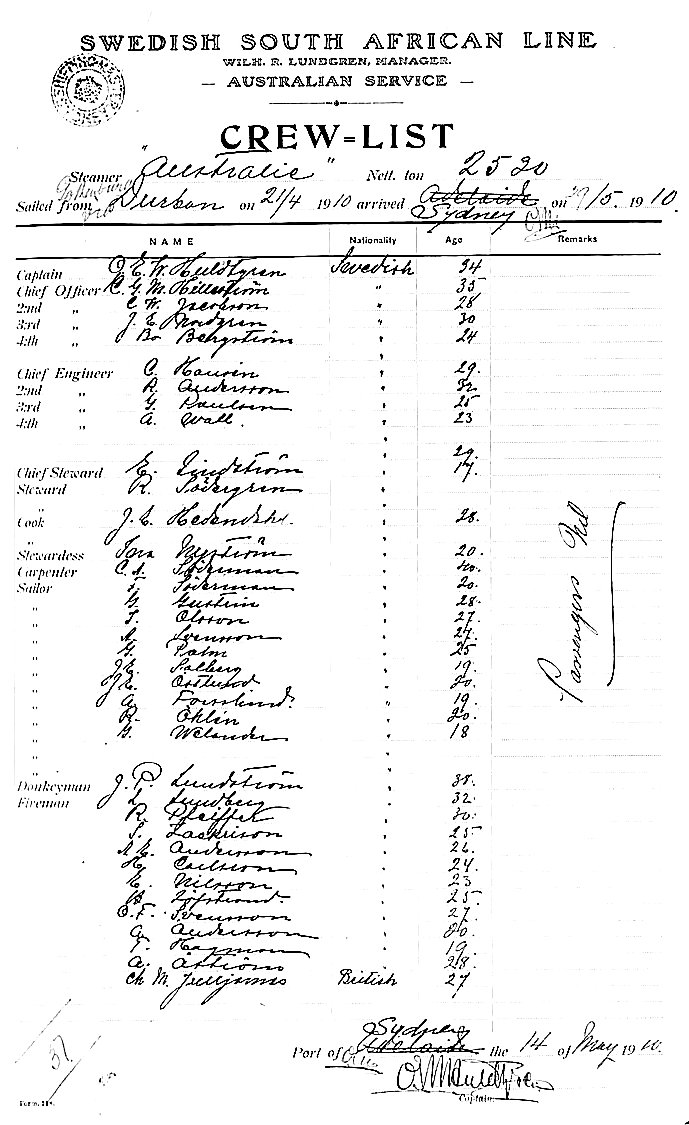 SWEDISH SOUTH AFRICAN LINE
WILH. R. LUNDGREN, MANAGER.
— AUSTRALIAN SERVICE —
CREW=LIST
Steamer "Australic" Nett. ton 2530
Sailed from Durban on 21/4 1910 arrived Adelaide on 29/5. 1910.
via Sydney
NAME Nationality Age Remarks
Captain Swedish 34
Chief Officer C. G. M. Hillström " 35
2nd " C. W. Jacobson " 28
3rd " J. E. Nordgren " 30
4th " Bo Bergström " 24
Chief Engineer C. " 29.
2nd " R. Andersson " 32
3rd " G. Paulsen " 25
4th " A. Wall. " 23
29.
Chief Steward E. Lindström " 17.
Steward R. Södergren "
"
Cook J. E. " 28.
"
Stewardess Nyström " 20.
Carpenter C. A. Söderman " 40.
Sailor F. Söderman " 20.
" G. " 28.
" T. Olsson " 27.
" A. Svensson " 27.
" G. Palm " 25
" J. E. Salberg " 19.
" J. E. Östlund " 20.
" A. Forslund. " 19.
" R. Öhlin " 20.
" G. Welander " 18
"
"
Donkeyman J. P. Lundström " 38.
Fireman L. Lundberg " 32.
R. Pfeiffer " 30.
S. Zackrison " 25
A. E. Andersson " 26.
H. Carlsson " 24.
E. Nilsson " 23
Löfstrand. " 25.
C. F. Svensson " 27.
A. Andersson " 20.
T. Hagman " 19
A. Åström " 28.
Ch. M. British 27
Passengers Nil
Sydney
Port of Adelaide the 14 of May 1910.
Captain.
37
Form.